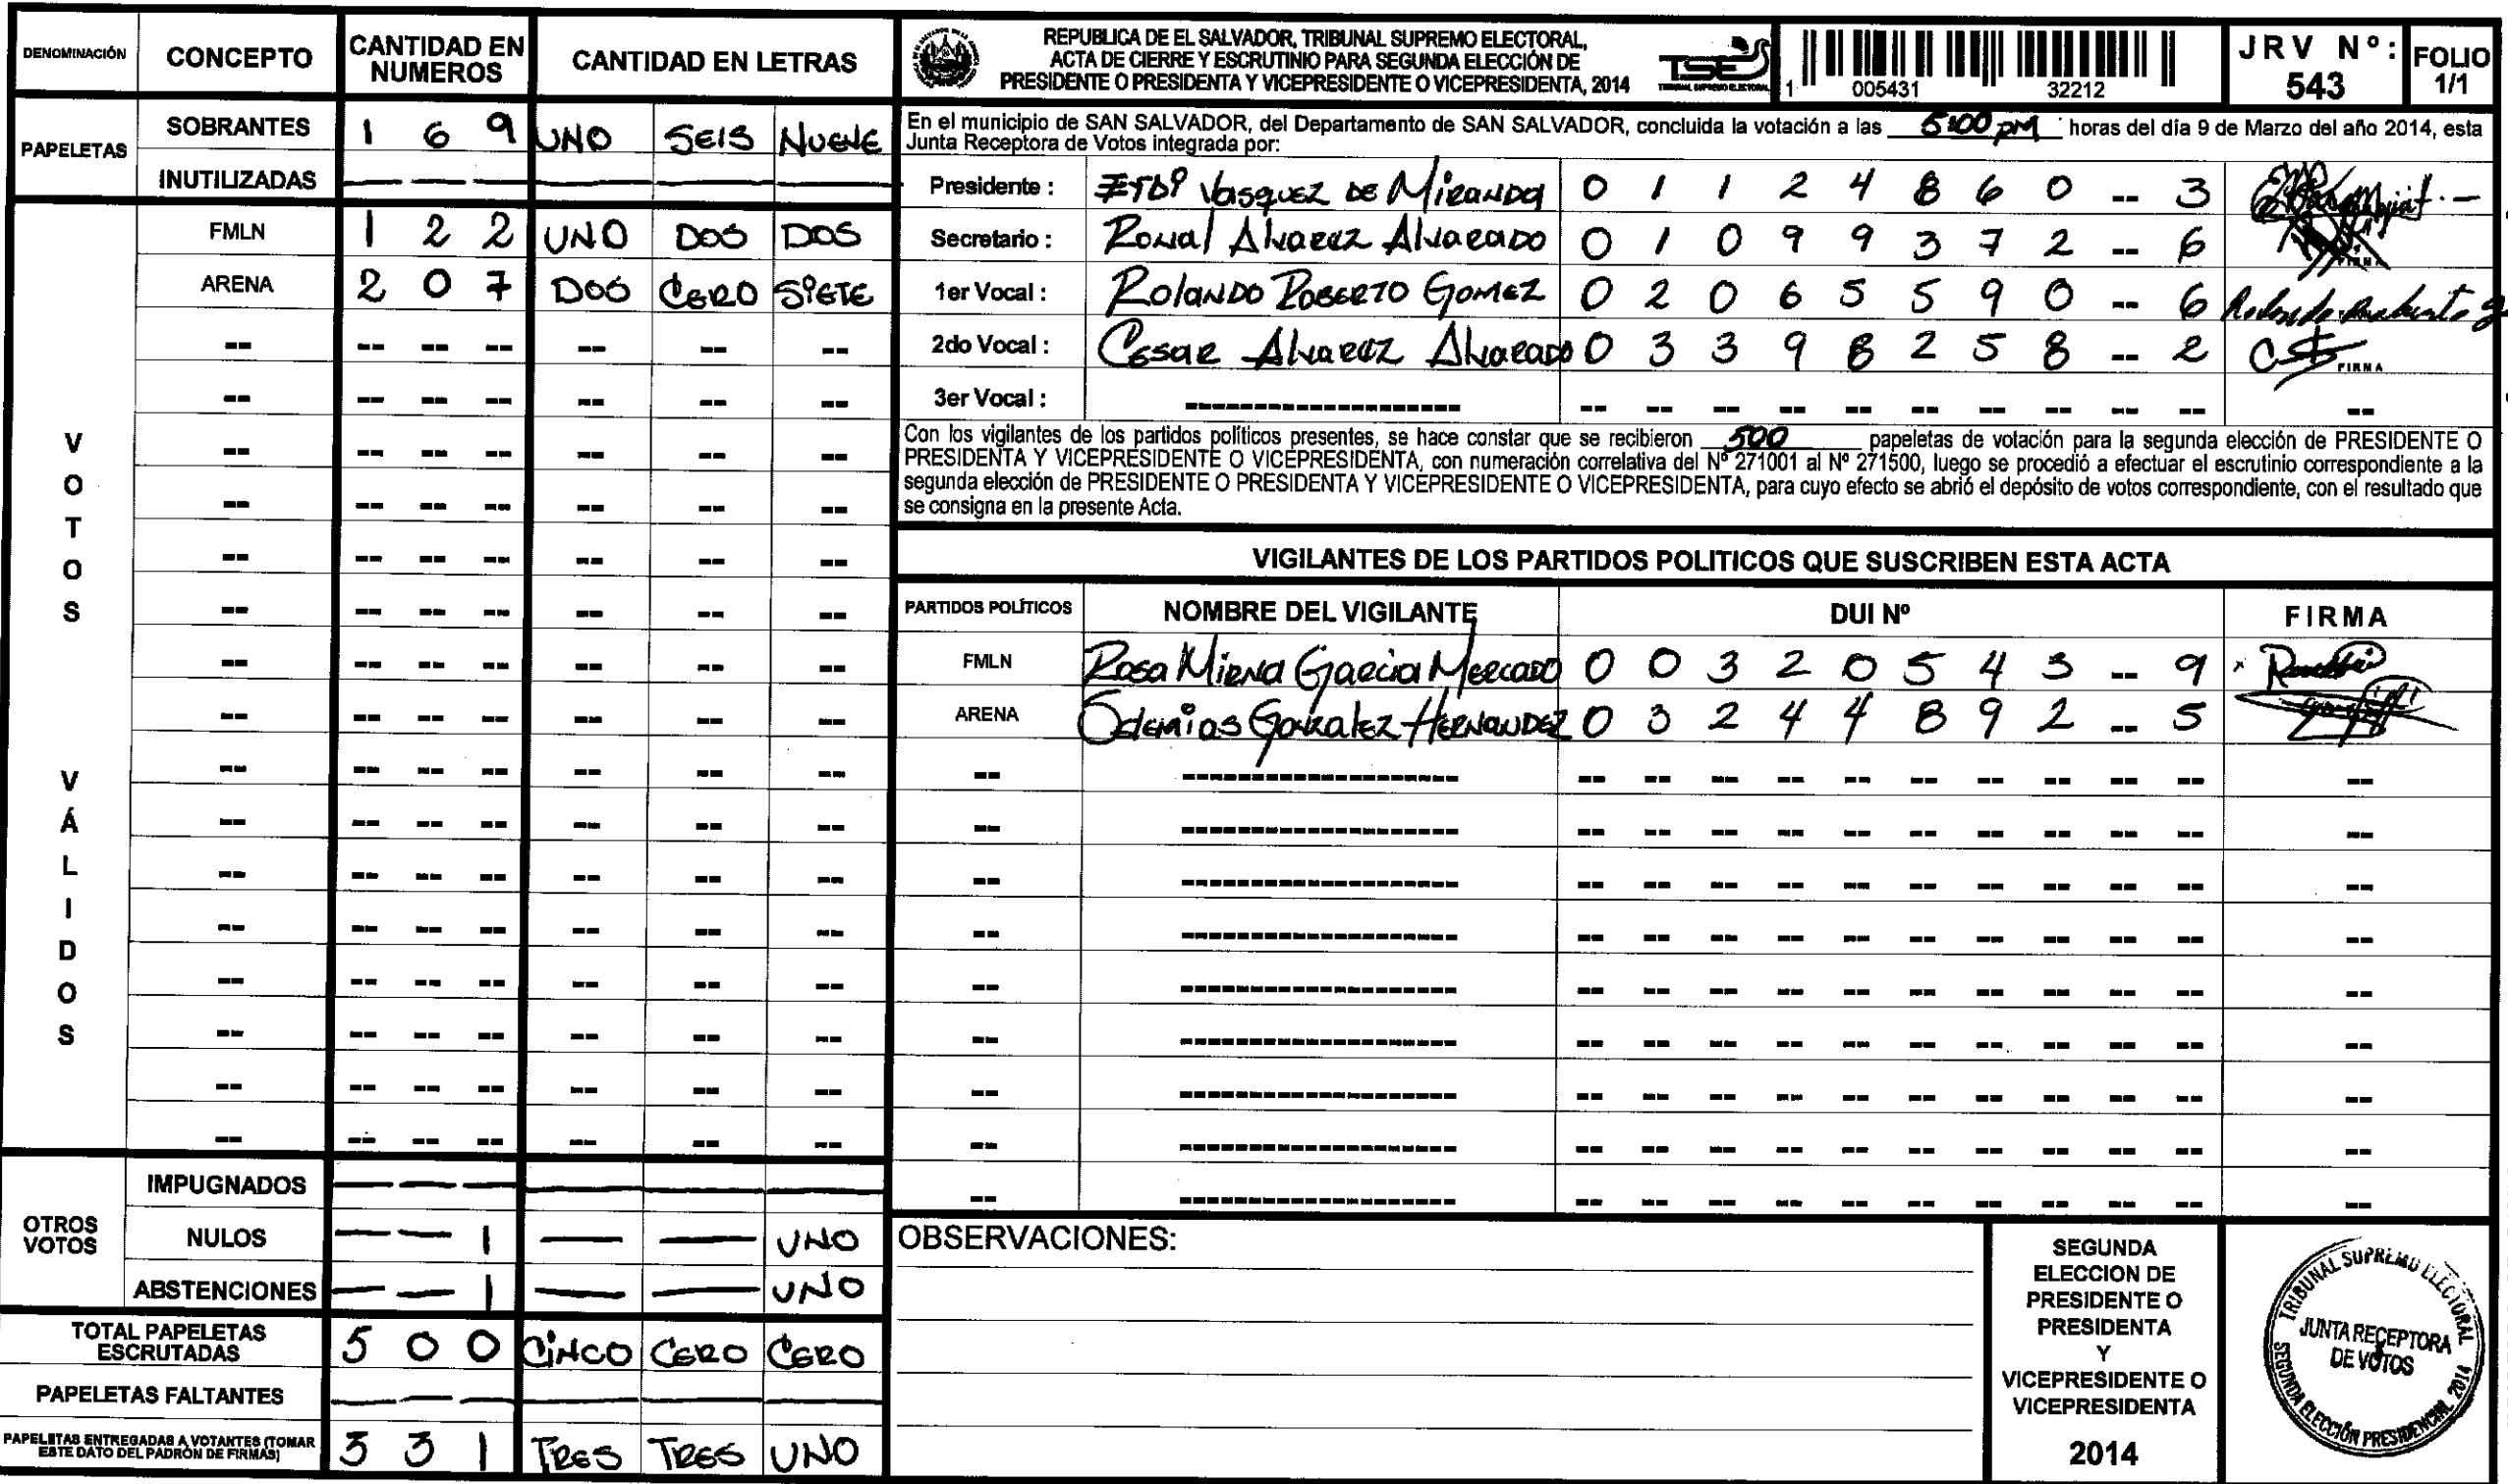 DENOMINACIÓN CONCEPTO CANTIDAD EN NUMEROS CANTIDAD EN LETRAS
PAPELETAS
SOBRANTES 1 6 9 UNO SEIS NUEVE
INUTILIZADAS
VOTOS VÁLIDOS
FMLN 1 2 2 UNO DOS DOS
ARENA 2 0 7 DOS CERO SIETE
OTROS VOTOS
IMPUGNADOS
NULOS — — 1 — — UNO
ABSTENCIONES — — 1 — — UNO
TOTAL PAPELETAS ESCRUTADAS 5 0 0 CINCO CERO CERO
PAPELETAS FALTANTES
PAPELETAS ENTREGADAS A VOTANTES (TOMAR ESTE DATO DEL PADRÓN DE FIRMAS) 3 3 1 TRES TRES UNO
REPUBLICA DE EL SALVADOR, TRIBUNAL SUPREMO ELECTORAL,
ACTA DE CIERRE Y ESCRUTINIO PARA SEGUNDA ELECCIÓN DE
PRESIDENTE O PRESIDENTA Y VICEPRESIDENTE O VICEPRESIDENTA, 2014
TSE
TRIBUNAL SUPREMO ELECTORAL
1 005431 32212
JRV Nº: 543
FOLIO 1/1
En el municipio de SAN SALVADOR, del Departamento de SAN SALVADOR, concluida la votación a las 5:00 pm horas del día 9 de Marzo del año 2014, esta
Junta Receptora de Votos integrada por:
Presidente : Vasquez DE Miranda 0 1 1 2 4 8 6 0 -- 3
Secretario : Ronal Alvarez Alvarado 0 1 0 9 9 3 7 2 -- 6
1er Vocal : Rolando Roberto Gomez 0 2 0 6 5 5 9 0 -- 6
2do Vocal : Cesar Alvarez Alvarado 0 3 3 9 8 2 5 8 -- 2 FIRMA
3er Vocal :
Con los vigilantes de los partidos políticos presentes, se hace constar que se recibieron 500 papeletas de votación para la segunda elección de PRESIDENTE O
PRESIDENTA Y VICEPRESIDENTE O VICEPRESIDENTA, con numeración correlativa del Nº 271001 al Nº 271500, luego se procedió a efectuar el escrutinio correspondiente a la
segunda elección de PRESIDENTE O PRESIDENTA Y VICEPRESIDENTE O VICEPRESIDENTA, para cuyo efecto se abrió el depósito de votos correspondiente, con el resultado que
se consigna en la presente Acta.
VIGILANTES DE LOS PARTIDOS POLITICOS QUE SUSCRIBEN ESTA ACTA
PARTIDOS POLÍTICOS NOMBRE DEL VIGILANTE DUI Nº FIRMA
FMLN Rosa Mirna Garcia Mercado 0 0 3 2 0 5 4 3 -- 9
ARENA Gonzalez Hernandez 0 3 2 4 4 8 9 2 -- 5
OBSERVACIONES:
SEGUNDA
ELECCION DE
PRESIDENTE O
PRESIDENTA
Y
VICEPRESIDENTE O
VICEPRESIDENTA
2014
TRIBUNAL SUPREMO ELECTORAL
JUNTA RECEPTORA
DE VOTOS
SEGUNDA ELECCIÓN PRESIDENCIAL 2014